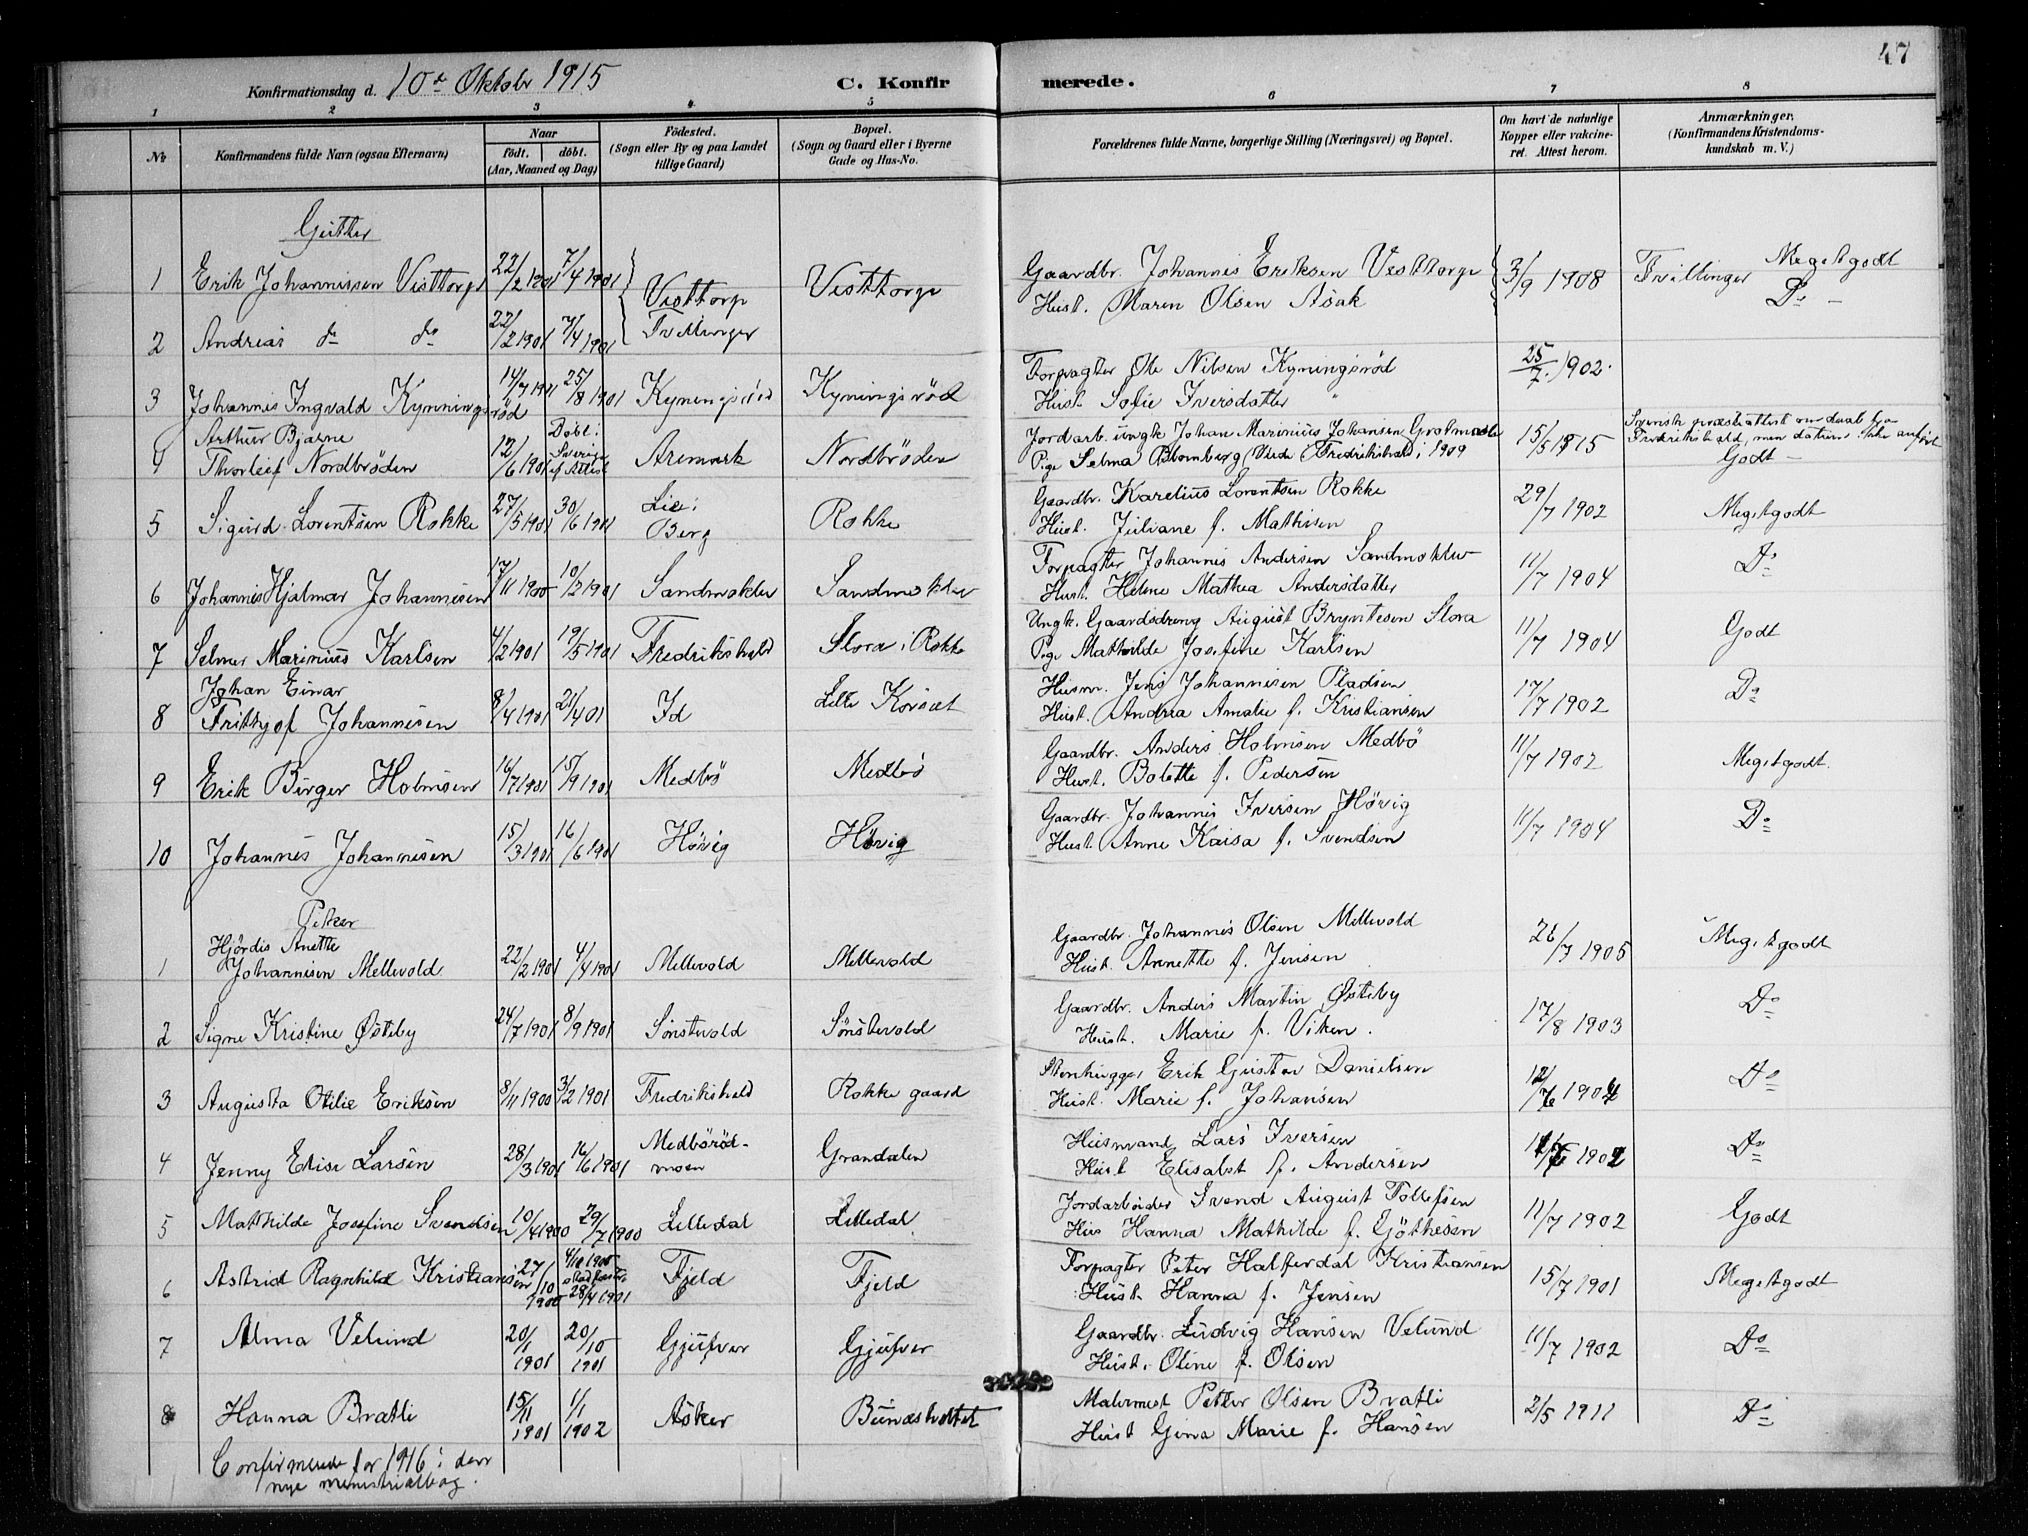 47
Konfirmationsdag d. 10de Oktober 1915
C. Konfirmerede.
1 2 3 4 5 6 7 8
No
Konfirmandens fulde Navn (ogsaa Efternavn)
Naar
födt. döbt.
(Aar, Maaned og Dag)
Födested.
(Sogn eller By og paa Landet
tillige Gaard)
Bopæl.
(Sogn og Gaard eller i Byerne
Gade og Hus-No.
Forældrenes fulde Navne, borgerlige Stilling (Næringsvei) og Bopæl.
Om havt de naturlige
Kopper eller vakcine-
ret. Attest herom.
Anmærkninger.
(Konfirmandens Kristendoms-
kundskab m. V.)
Gutter
1 Erik Johannissen Visttorp 22/2 1901 7/4 1901 Visttorp Visttorp Gaardbr. Johannis Eriksen Vesttorp 3/9 1908 Tvillinger Megetgodt
Hust. Maren Olsen Asak Do -
2 Andreas do do 22/2 1901 7/4 1901 Tvillinger
3 Johannis Ingvald Kynningsröd 14/7 1901 25/8 1901 Kynningsröd Kyningsröd Forpagter Ole Nilsen Kyningsröd 25/7 1902.
Hust. Sofie Iversdatter "
4 Arthur Bjarne
Thorleif Nordbröden 12/6 1901 Döbt i Sverige Aremark Nordbröden Jordarb. ungk. Johan Marinius Johansen 15/5 1915
Pige Selma Blomberg (Vide Fredrikshald) i 1909 Godt -
5 Sigurd Lorentsen Rokke 27/5 1901 30/6 1901 Lie i Berg Rokke Gaardbr. Karelius Lorentsen Rokke 29/7 1902 Megetgodt
Hust. Juliane f. Mathisen
6 Johannis Hjalmar Johannisen 17/11 1900 10/2 1901 Sandmokler Sandmokler Forpagter Johannis Andersen Sandmokler 11/7 1904 Do
Hust. Helene Mathea Andersdatter
7 Selmer Marinius Karlsen 4/2 1901 19/5 1901 Fredrikshald Slora i Rokke Ungk. Gaardsdreng August Bryntesen Slora 11/7 1904 Godt
Pige Mathilde Josefine Karlsen
8 Johan Einar
Frithjof Johannisen 8/4 1901 21/4 01 Id Lille Korsæt Husm. Jens Johannisen Pladsen 17/7 1902 Do
Hust. Andrea Amalie f. Kristiansen
9 Erik Birger Holmsen 16/7 1901 15/9 1901 Medbö Medbö Gaardbr. Anders Holmsen Medbö 11/7 1902 Megetgodt.
Hust. Bolette f. Pedersen
10 Johannes Johannisen 15/3 1901 16/6 1901 Hövig Hövig Gaardbr. Johannis Iversen Hövig 11/7 1904 Do
Hust. Anne Kaisa f. Svendsen
Piker
1 Hjördis Anette
Johannisen Mellevold 22/2 1901 4/4 1901 Mellevold Mellevold Gaardbr. Johannis Olsen Mellevold 26/7 1905 Megetgodt
Hust. Annette f. Jensen
2 Signe Kristine Østeby 24/7 1901 8/9 1901 Sönstevold Sönstevold Gaardbr. Anders Martin Østeby 17/8 1903 Do
Hust. Marie f. Viken.
3 Augusta Otilie Eriksen 8/11 1900 3/2 1901 Fredrikshald Rokke gaard Stenhugger Erik Gustav Danielsen 12/7 1902 Do
Hust. Marie f. Johansen
4 Jenny Elise Larsen 28/3 1901 16/6 1901 Medböröd-
moen Grandalen Husmand Lars Iversen 1902 Do
Hust Elisabet f. Andersen
5 Mathilde Josefine Svendsen 10/4 1900 29/7 1900 Lilledal Lilledal Jordarbeider Svend August Tollefsen 11/7 1902 Godt
Hus Hanna Mathilde f. Göthesen
6 Astrid Ragnhild Kristiansen 27/10 1900 4/11 1900 28/4 1901 Fjeld Fjeld Forpagter Peter Halferdal Kristiansen 15/7 1901 Megetgodt
Hust. Hanna f. Jensen
7 Alma Velund 20/1 1901 20/10 1901 Gjufver Gjufver Gaardbr. Ludvig Hansen Velund 11/7 1902 Do
Hust. Oline f. Olsen
8 Hanna Bratli 15/11 1901 1/1 1902 Asker Bunæsholtet Malermest Petter Olsen Bratli 2/5 1911 Do
Hust Gina Marie f. Hansen
Confirmerede for 1916 i den
nye ministrialbog.